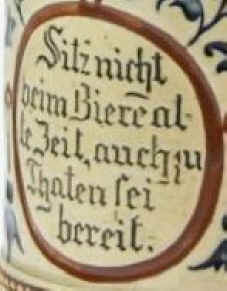 Sitz nicht
beim Biere al-
le Zeit, auch zu
Thaten sei
bereit.